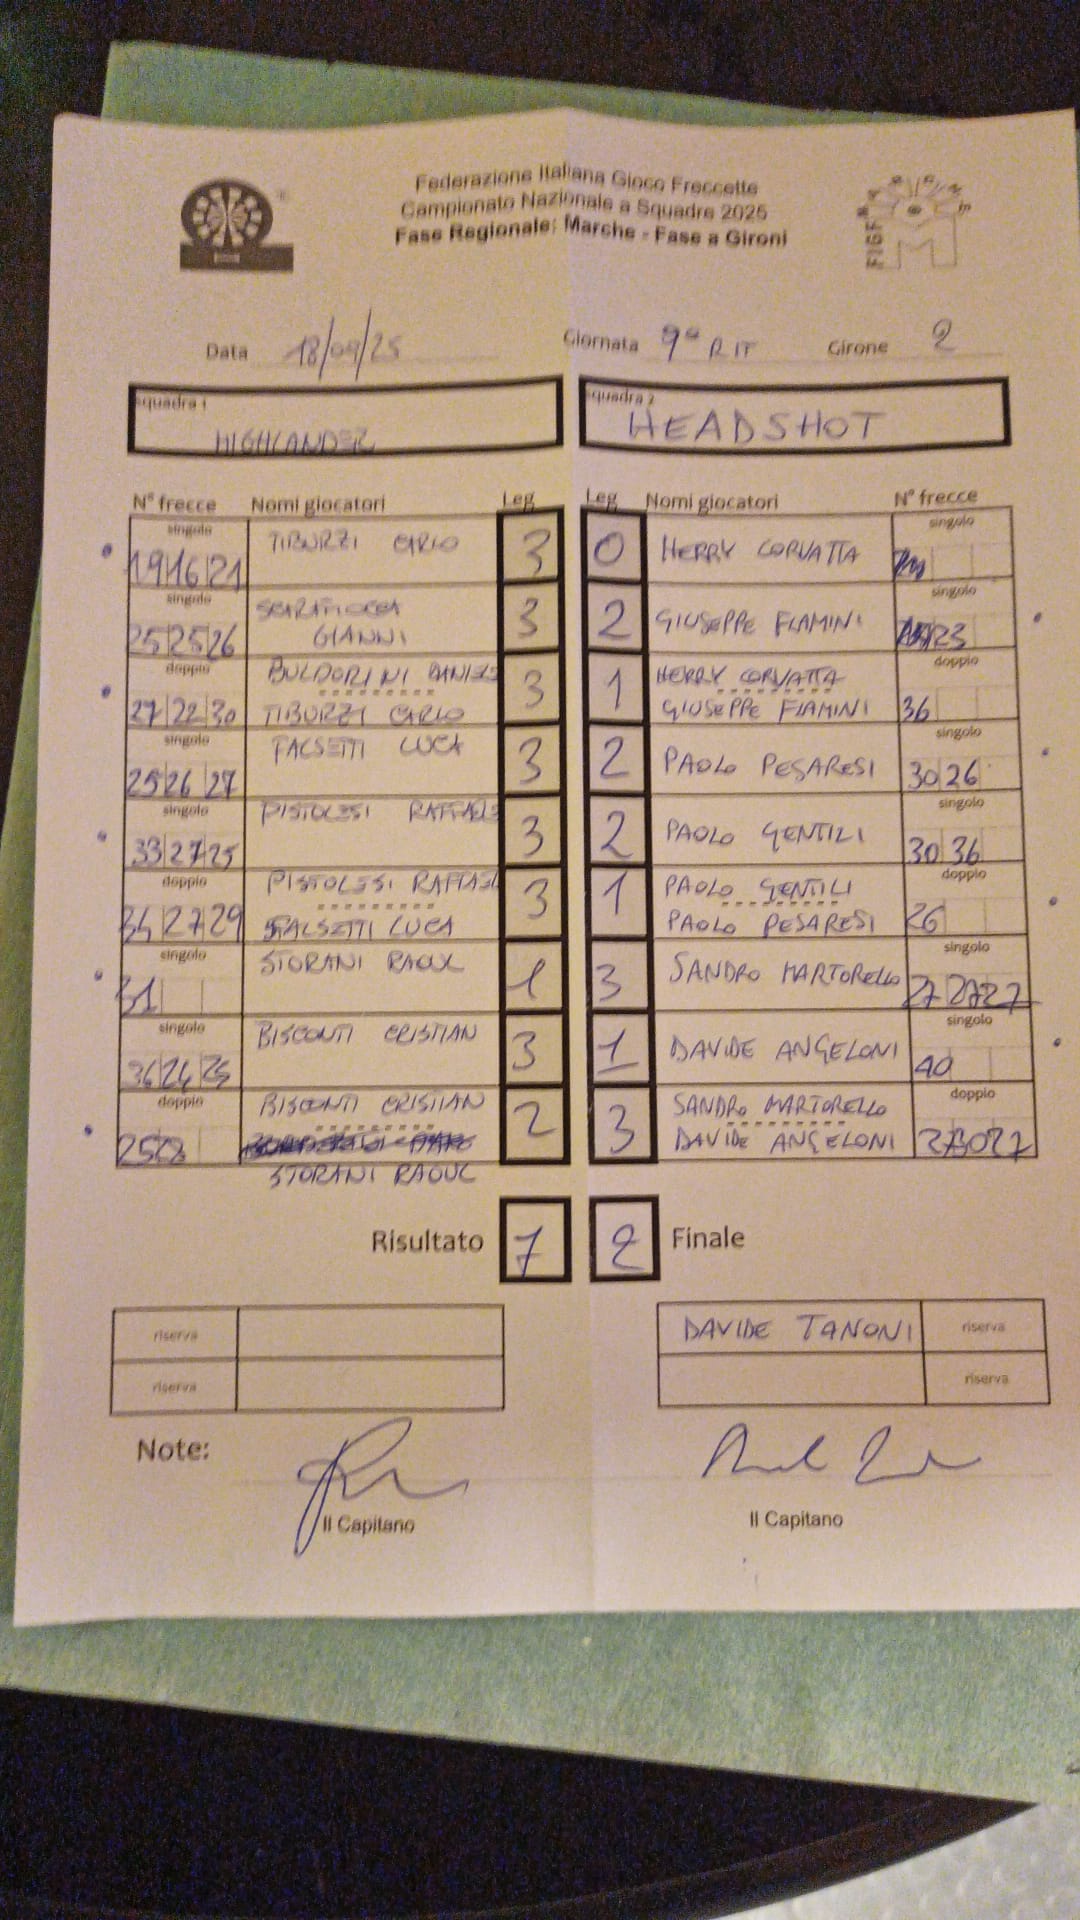 Federazione Italiana Gioco Freccette
Campionato Nazionale a Squadre 2025
Fase Regionale: Marche - Fase a Gironi
FIGF
Data 18/09/25 Giornata 9° RIT Girone 2
Squadra 1 HIGHLANDER
Squadra 2 HEADSHOT
N° frecce Nomi giocatori Leg Leg Nomi giocatori N° frecce
singolo 19 16 21 TIBURZI CARLO 3 0 HERRY CORVATTA singolo
singolo 25 25 26 GIANNI 3 2 GIUSEPPE FLAMINI singolo 23
doppio 27 22 30 BULDORINI DANIELE 3 1 HERRY CORVATTA doppio 36
TIBURZI CARLO GIUSEPPE FLAMINI
singolo 25 26 27 FALSETTI LUCA 3 2 PAOLO PESARESI singolo 30 26
singolo 33 27 25 PISTOLESI RAFFAELE 3 2 PAOLO GENTILI singolo 30 36
doppio 34 27 29 PISTOLESI RAFFAEL 3 1 PAOLO GENTILI doppio 26
FALSETTI LUCA PAOLO PESARESI
singolo 31 STORANI RAOUL 1 3 SANDRO MARTORELLO singolo 27 27 27
singolo 36 24 25 BISCONTI CRISTIAN 3 1 DAVIDE ANGELONI singolo 40
doppio 25 28 BISCONTI CRISTIAN 2 3 SANDRO MARTORELLO doppio 27 30 27
DAVIDE ANGELONI
STORANI RAOUL
Risultato 7 2 Finale
riserva DAVIDE TANONI riserva
riserva riserva
Note:
Il Capitano Il Capitano